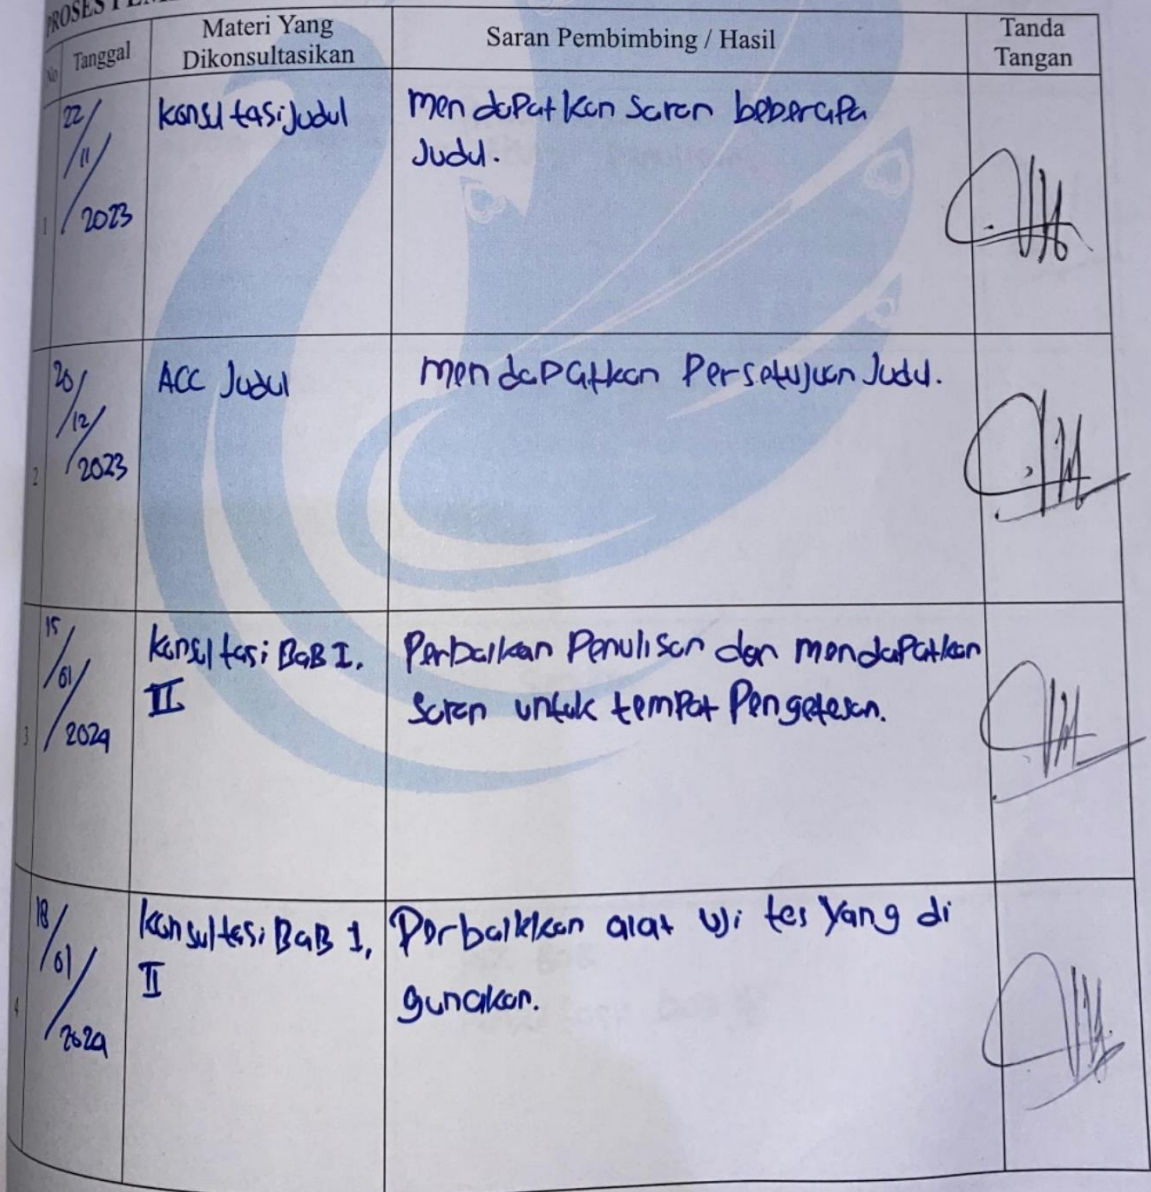 No
Tanggal
Materi Yang
Dikonsultasikan
Saran Pembimbing / Hasil
Tanda
Tangan
1
22/
11/
2023
konsultasi Judul
mendapatkan saran beberapa
Judul.
2
20/
12/
2023
ACC Judul
mendapatkan Persetujuan Judul.
3
15/
01/
2024
konsultasi BaB I,
II
Perbaikan Penulisan dan mendapatkan
saran untuk tempat Pengetesan.
4
18/
01/
2024
konsultasi BaB 1,
II
Perbaikkan alat uji tes yang di
gunakan.